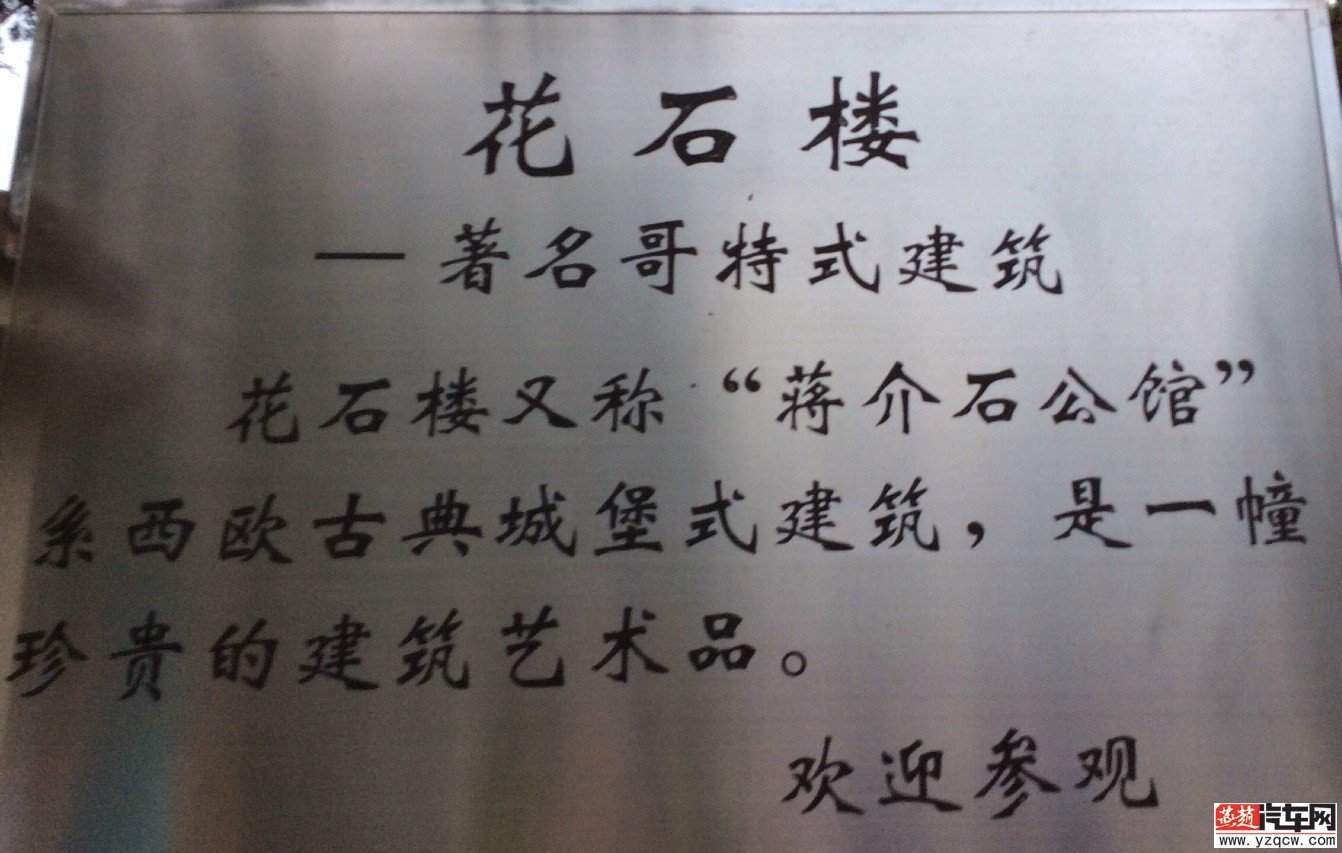 花石楼
—著名哥特式建筑
花石楼又称“蒋介石公馆”
系西欧古典城堡式建筑，是一幢
珍贵的建筑艺术品。
欢迎参观
燕赵汽车网
www.yzqcw.com